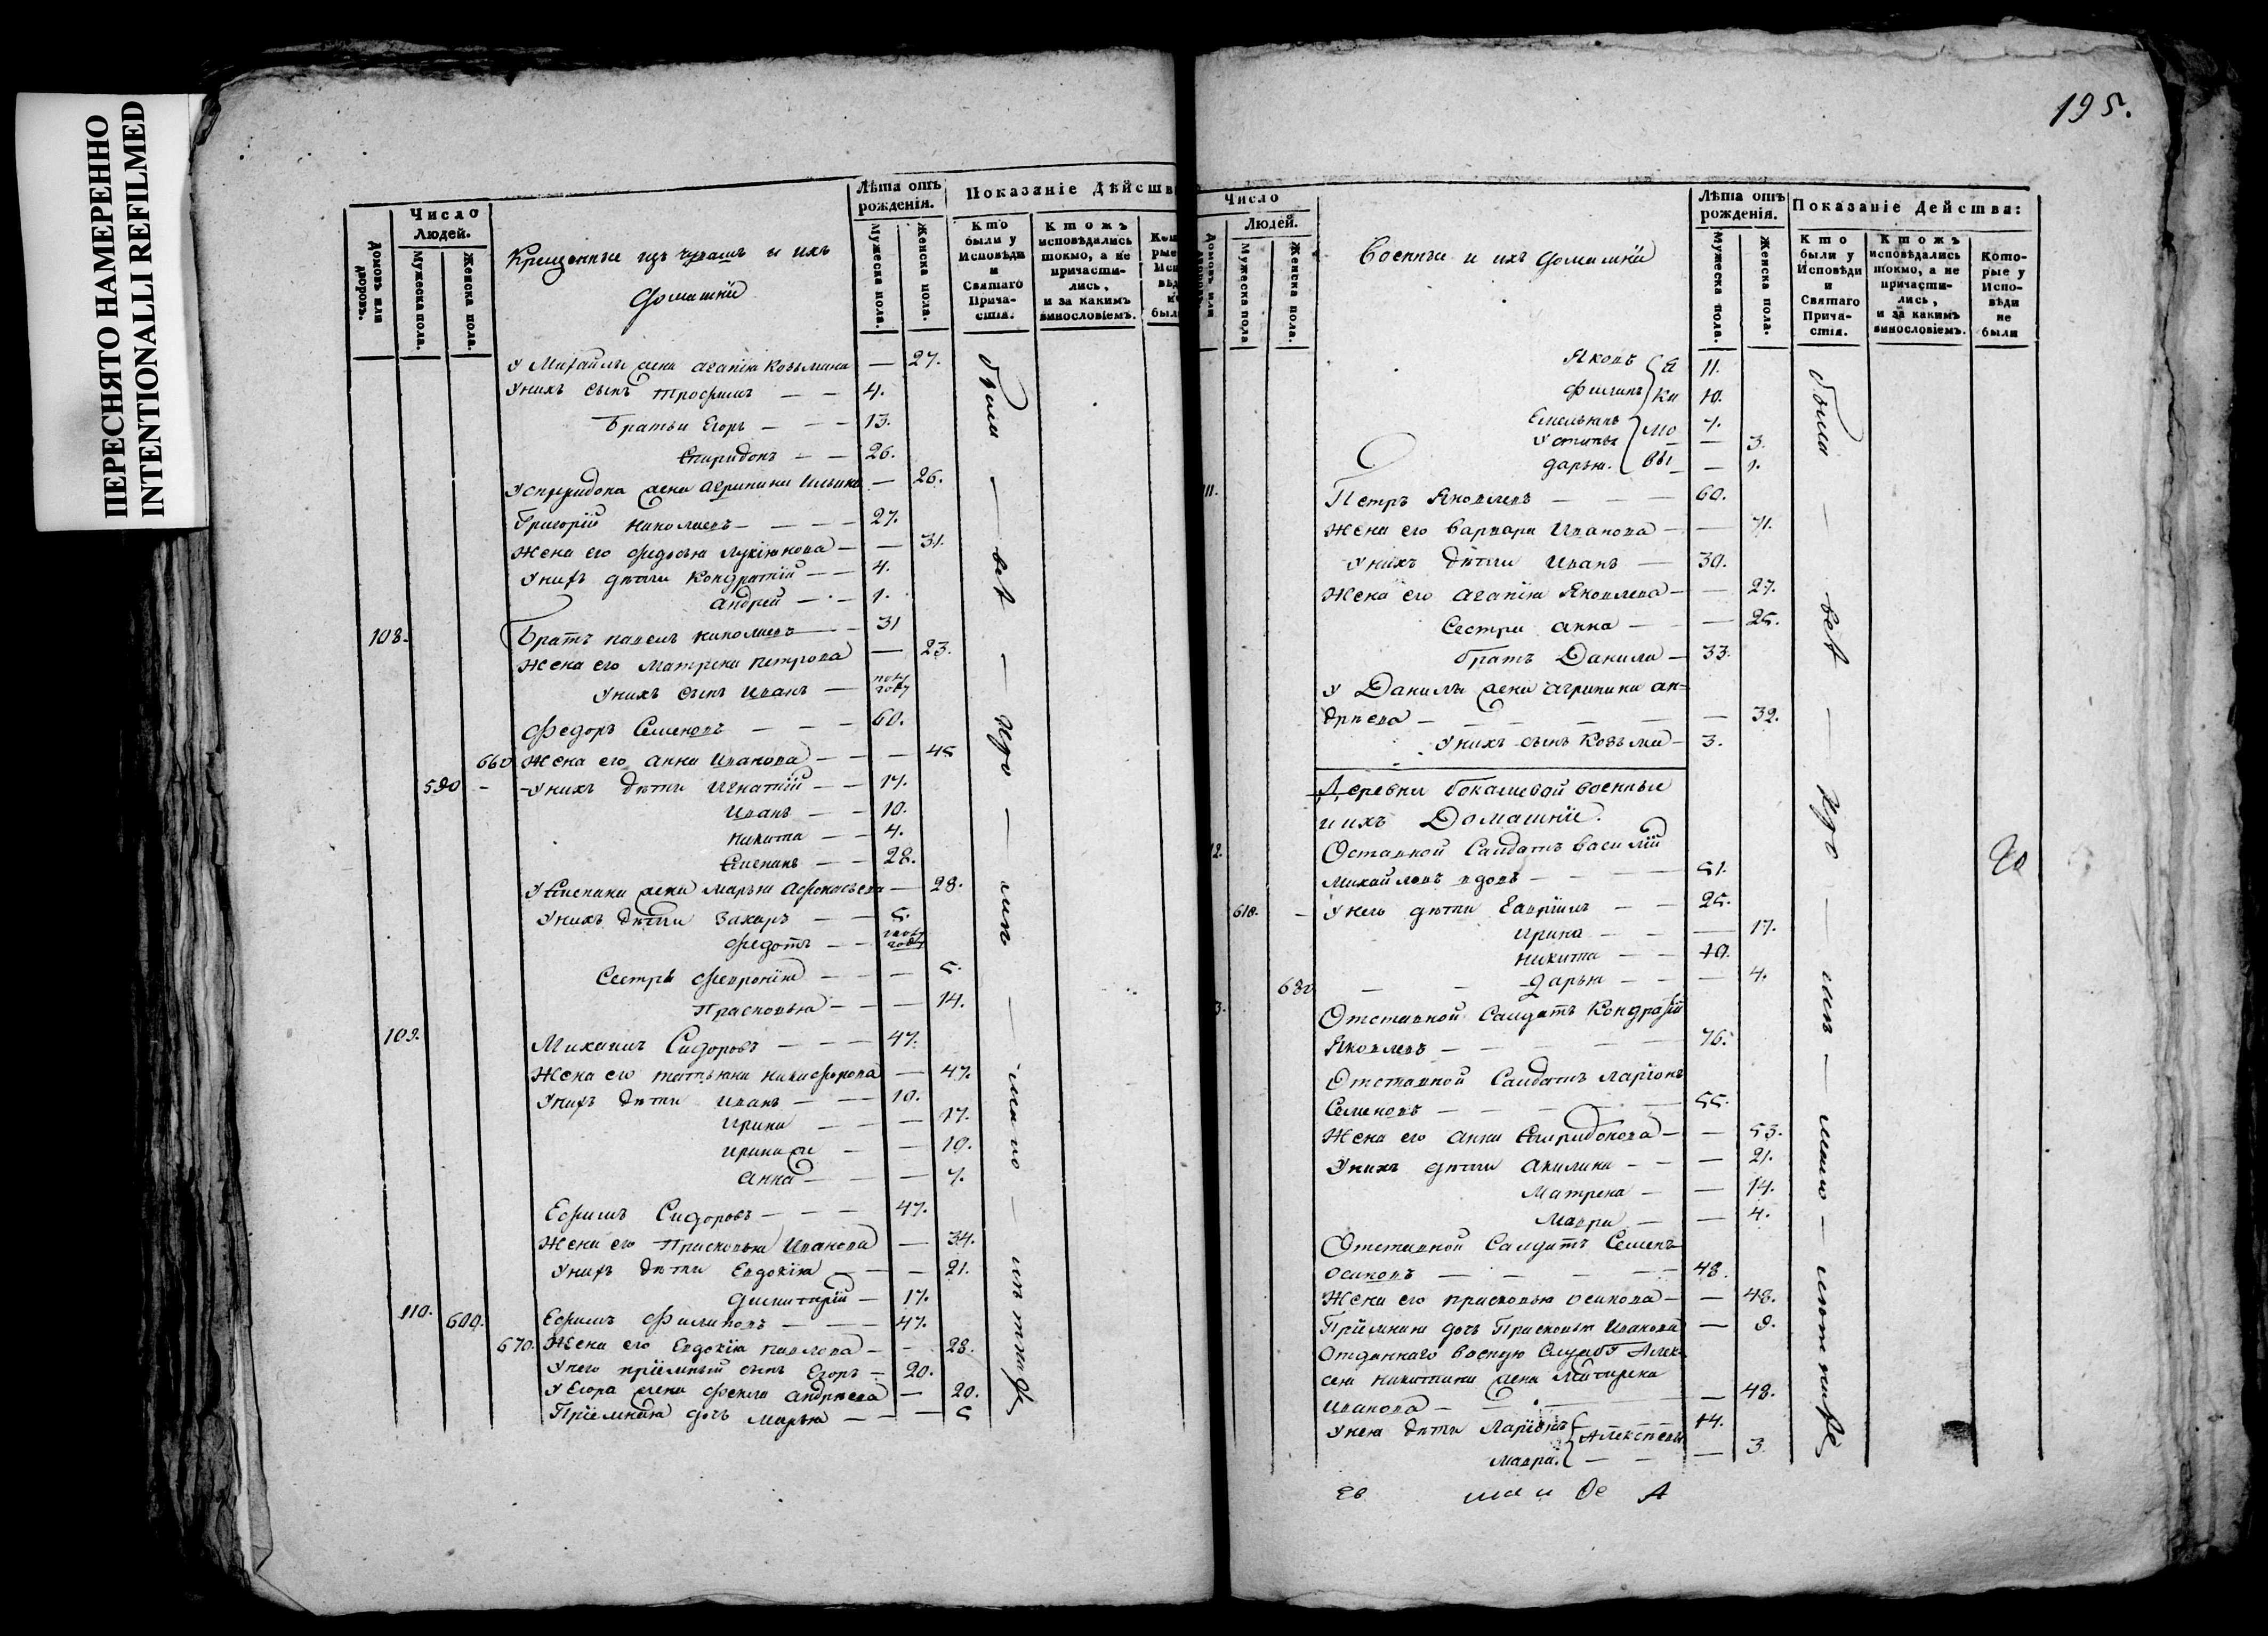 ПЕРЕСНЯТО НАМЕРЕННО
INTENTIONALLI REFILMED
Число
Людей.
Домовъ или дворовъ.
Мужеска пола.
Женска пола.
Крещенные изъ чувашъ и ихъ
домашніи
Лѣта отъ
рожденія.
Мужеска пола.
Женска пола.
Показаніе Дѣйств
Кто
были у
Исповѣди
и
Святаго
Прича-
стія.
Ктожъ
исповѣдались
токмо, а не
причасти-
лись,
и за какимъ
винословіемъ.
У Михайлы жена Агапія Козьмина — 27.
У нихъ сынъ Трофимъ — — 4.
Братьи Егоръ — — — 13.
Спиридонъ — — 26.
У Спиридона жена Агрипина Ильина — 26.
Григорій Николаевъ — — — — 27.
Жена его Федосья Лукіянова — — 31.
У нихъ дѣти Кондратій — — 4.
Андрей — — 1.
108. Братъ Павелъ Николаевъ — 31
Жена его Матрена Петрова — 23.
У нихъ сынъ Иванъ — полу году
Федоръ Семеновъ — — — 60.
660 Жена его Анна Иванова — — — 45
590 — У нихъ дѣти Игнатій — — 17.
Иванъ — — 10.
Никита — — 4.
Степанъ — — 28.
У Степана жена Марья Афонасьева — 28.
У нихъ дѣти Захаръ — — 5.
Федотъ — — полу году
Сестры Феврониія — — — 5.
Прасковья — — — 14.
109. Михаилъ Сидоровъ — — — 47.
Жена его Татьяна Никифорова — 47.
У нихъ дѣти Иванъ — — 10.
Ирина — — — 17.
Ирина же — — 10.
Анна — — — 7.
Ефимъ Сидоровъ — — — 47.
Жена его Прасковья Иванова — 34.
У нихъ дѣти Евдокія — — — 21.
Димитрій — 17.
110. 600. Ефимъ Филиповъ — — — 47.
670. Жена его Евдокія Павлова — — 28.
У него пріемный сынъ Егоръ — 20.
У Егора жена Фекла Андрѣева — 20.
Пріемная дочь Марья — — — 5
были — всѣ —
195.
Число
Людей.
Мужеска пола
Женска пола.
Военные и их домашніи
Лѣта отъ
рожденія.
Мужеска пола.
Женска пола.
Показаніе Действа:
Кто
были у
Исповѣди
и
Святаго
Прича-
стія.
Ктожъ
исповѣдались
токмо, а не
причасти-
лись,
и за какимъ
винословіемъ.
Кото-
рые у
Испо-
вѣди
не
были
Яковъ Я 11.
Филипъ ко 10.
Емельянъ 7.
Устинья мо — 3.
Дарья. вы — 1.
11. Петръ Яковлевъ — — — 60.
Жена его Варвара Иванова — — 71.
У нихъ дѣти Иванъ — 30.
Жена его Агапія Яковлева — — 27.
Сестра Анна — — — 25.
братъ Данила — 33.
У Данилы жена Агрипина Ан=
дрѣева — — — — — 32.
У нихъ сынъ Козьма — 3.
Деревни Бокашевой военные
и ихъ Домашніе.
12. Оставной Салдатъ Василій
Михайловъ вдовъ — — — — 51.
610. — У него дѣти Гавріилъ — — 25.
Ирина — — — 17.
Никита — — 10.
680 — — Дарья — — — 4.
3. Отставной Салдатъ Кондратій
Яковлевъ — — — — — 76.
Отставной Салдатъ Ларіонъ
Семеновъ — — — — — 55.
Жена его Анна Спиридонова — — 53.
У нихъ дѣти Акилина — — — 21.
Матрена — — 14.
Мавра — — 4.
Отставной Салдатъ Семенъ
Осиповъ — — — — — 48.
Жена его Прасковья Осипова — — 48.
Пріемная дочь Прасковья Иванова — 8.
Отданнаго воєную Службу Алек-
сея Никитина жена Матрена
Иванова — — — — 48.
У нея дѣти Ларіонъ Алексѣевы 14.
Мавра. — — — 3.
были — всѣ —